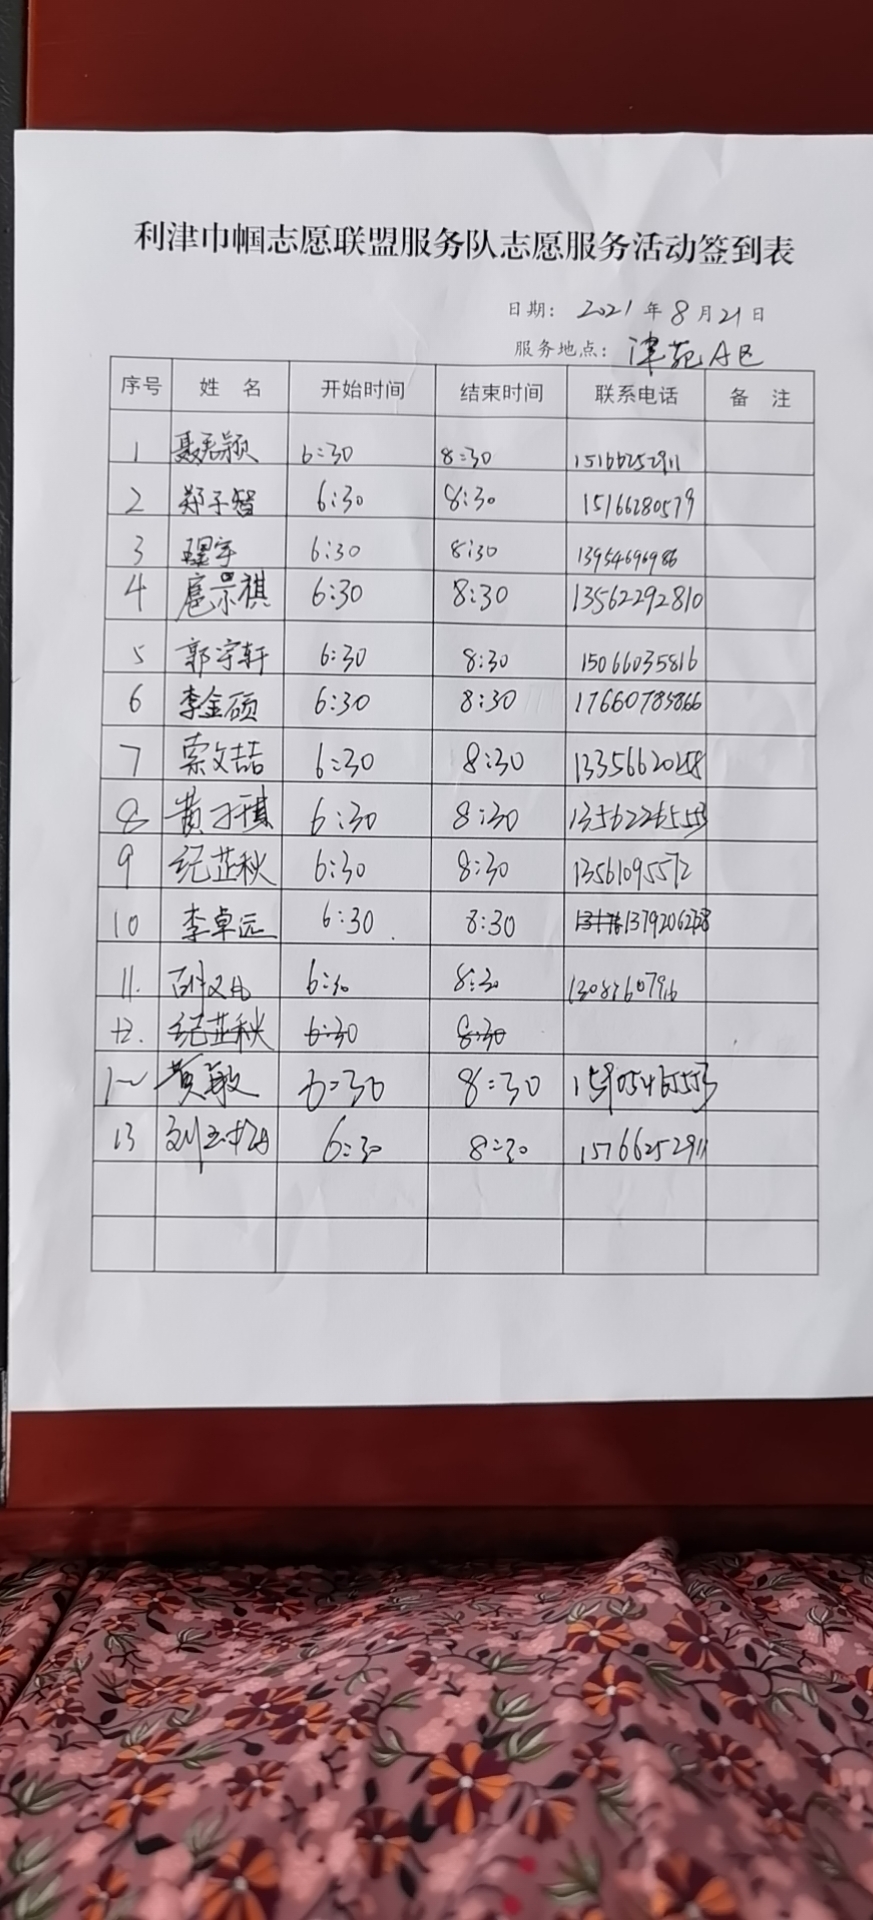 利津巾帼志愿联盟服务队志愿服务活动签到表
日期: 2021 年 8 月 21 日
服务地点: 津苑A区
序号 姓 名 开始时间 结束时间 联系电话 备 注
1 聂若颖 6:30 8:30 15166252911
2 郑子智 6:30 8:30 15166280579
3 6:30 8:30 13954696986
4 扈景祺 6:30 8:30 13562292810
5 郭宇轩 6:30 8:30 15066035816
6 李金硕 6:30 8:30 17660785866
7 索文喆 6:30 8:30
8 黄子祺 6:30 8:30
9 纪芷秋 6:30 8:30 13561095572
10 李卓远 6:30 8:30
11. 6:30 8:30
12. 纪芷秋 6:30 8:30
黄敏 6:30 8:30
13 6:30 8:30